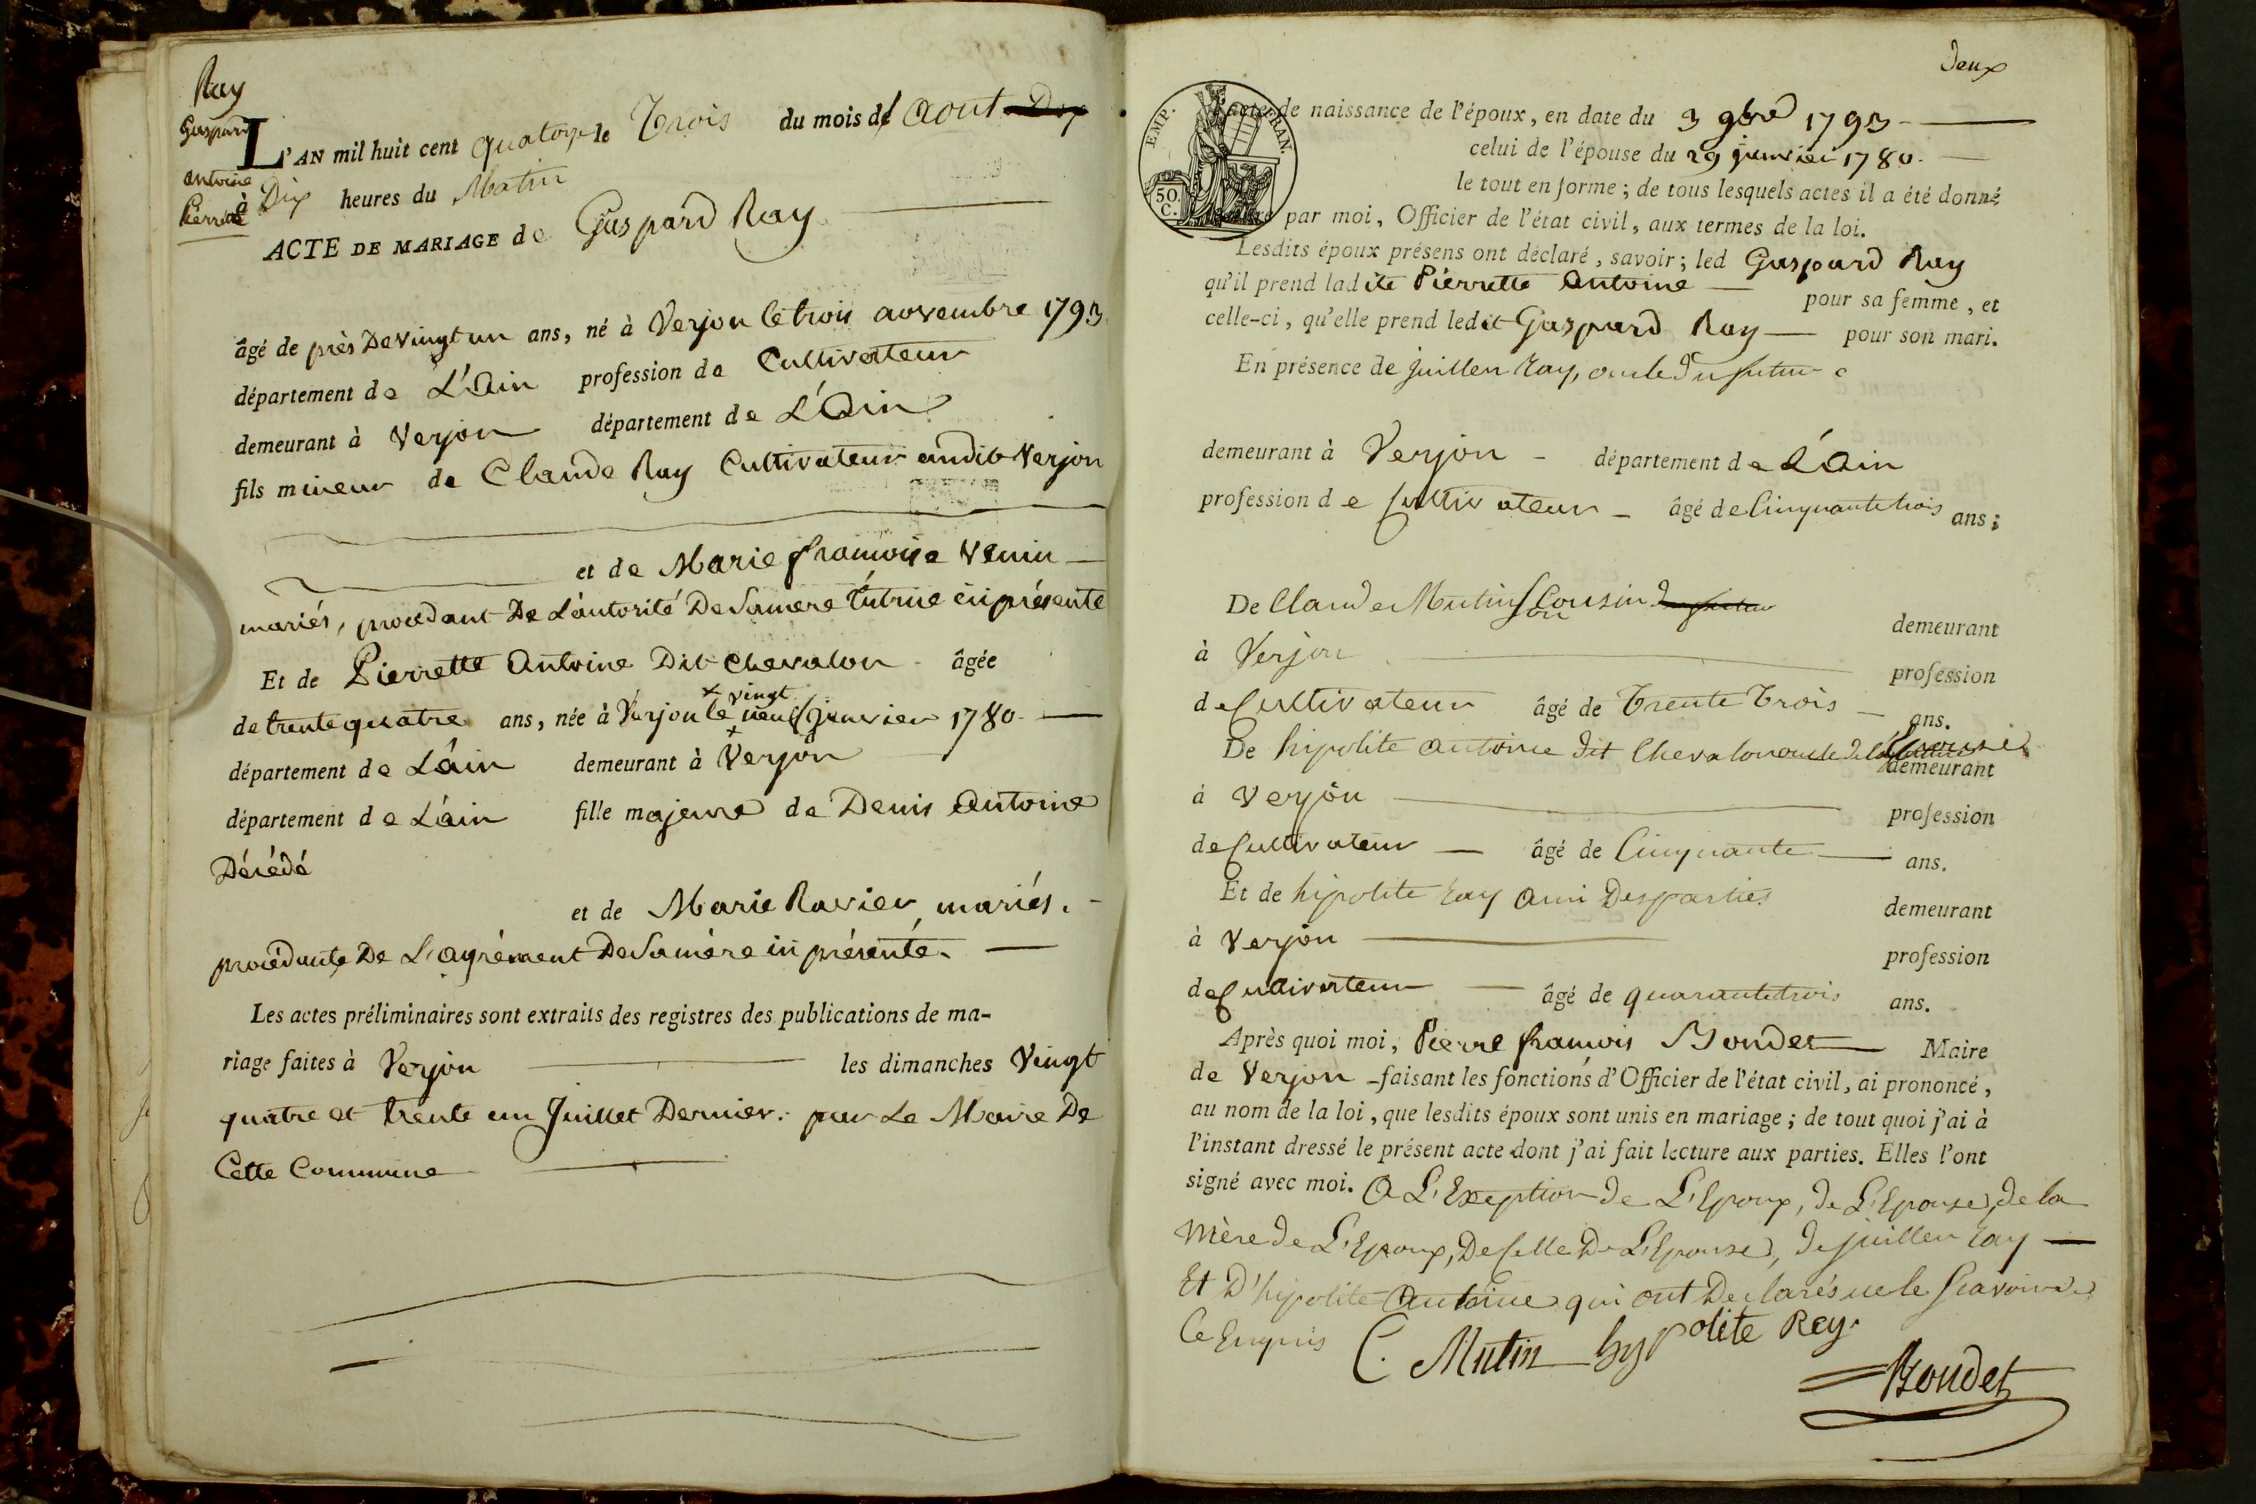 Ray
Gaspard
antoine
Pierrette
L'AN mil huit cent quatorze le Trois du mois d'aout Dix
à Dix heures du Matin
ACTE DE MARIAGE de Gaspard Ray
âgé de près De vingt un ans, né à Verjon le trois novembre 1793
département de L'Ain profession de Cultivateur
demeurant à Verjon département de L'Ain
fils mineur de Claude Ray Cultivateur audit Verjon
et de Marie francoise Venin
mariés, procedant De L'autorité De Samere Tutrice ici présente
Et de Pierrette Antoine Dit Chevalon âgée
de trente quatre ans, née à Verjon le vingt neuf janvier 1780
département de L'ain demeurant à Verjon
département de L'ain fille majeure de Denis Antoine
Décédé
et de Marie Ravier, mariés.
procédante De L'agrément De Samère ici présente.
Les actes préliminaires sont extraits des registres des publications de ma-
riage faites à Verjon les dimanches Vingt
quatre et trente un Juillet Dernier. par Le Maire De
Cette Commune
Deux
EMP. FRAN.
50.
C.
acte de naissance de l'époux, en date du 3 9bre 1793
celui de l'épouse du 29 janvier 1780.
le tout en forme; de tous lesquels actes il a été donné
par moi, Officier de l'état civil, aux termes de la loi.
Lesdits époux présens ont déclaré, savoir; led Gaspard Ray
qu'il prend ladite Pierrette Antoine pour sa femme, et
celle-ci, qu'elle prend ledit Gaspard Ray pour son mari.
En présence de juillen Ray, oncle du futur
demeurant à Verjon département de L'Ain
profession de Cultivateur âgé de Cinquante trois ans;
De Claude Mutin Son Cousin du futur demeurant
à Verjon profession
de Cultivateur âgé de Trente Trois ans.
De hipolite antoine dit Chevalon oncle de la Epouse demeurant
à Verjon profession
de Cultivateur âgé de Cinquante ans.
Et de hipolite Ray ami Des parties demeurant
à Verjon profession
de Cultivateur âgé de quarante trois ans.
Après quoi moi, Pierre francois Bondet Maire
de Verjon faisant les fonctions d'Officier de l'état civil, ai prononcé,
au nom de la loi, que lesdits époux sont unis en mariage; de tout quoi j'ai à
l'instant dressé le présent acte dont j'ai fait lecture aux parties. Elles l'ont
signé avec moi. A L'Exeption de L'Epoux, de L'Epouse, de la
Mère de L'Epoux, De Celle De L'Epouse, de juillen Ray
Et D'hipolite Antoine qui ont Declarés ne le Scavoir de
Ce Enquis C. Mutin hypolite Rey.
Bondet